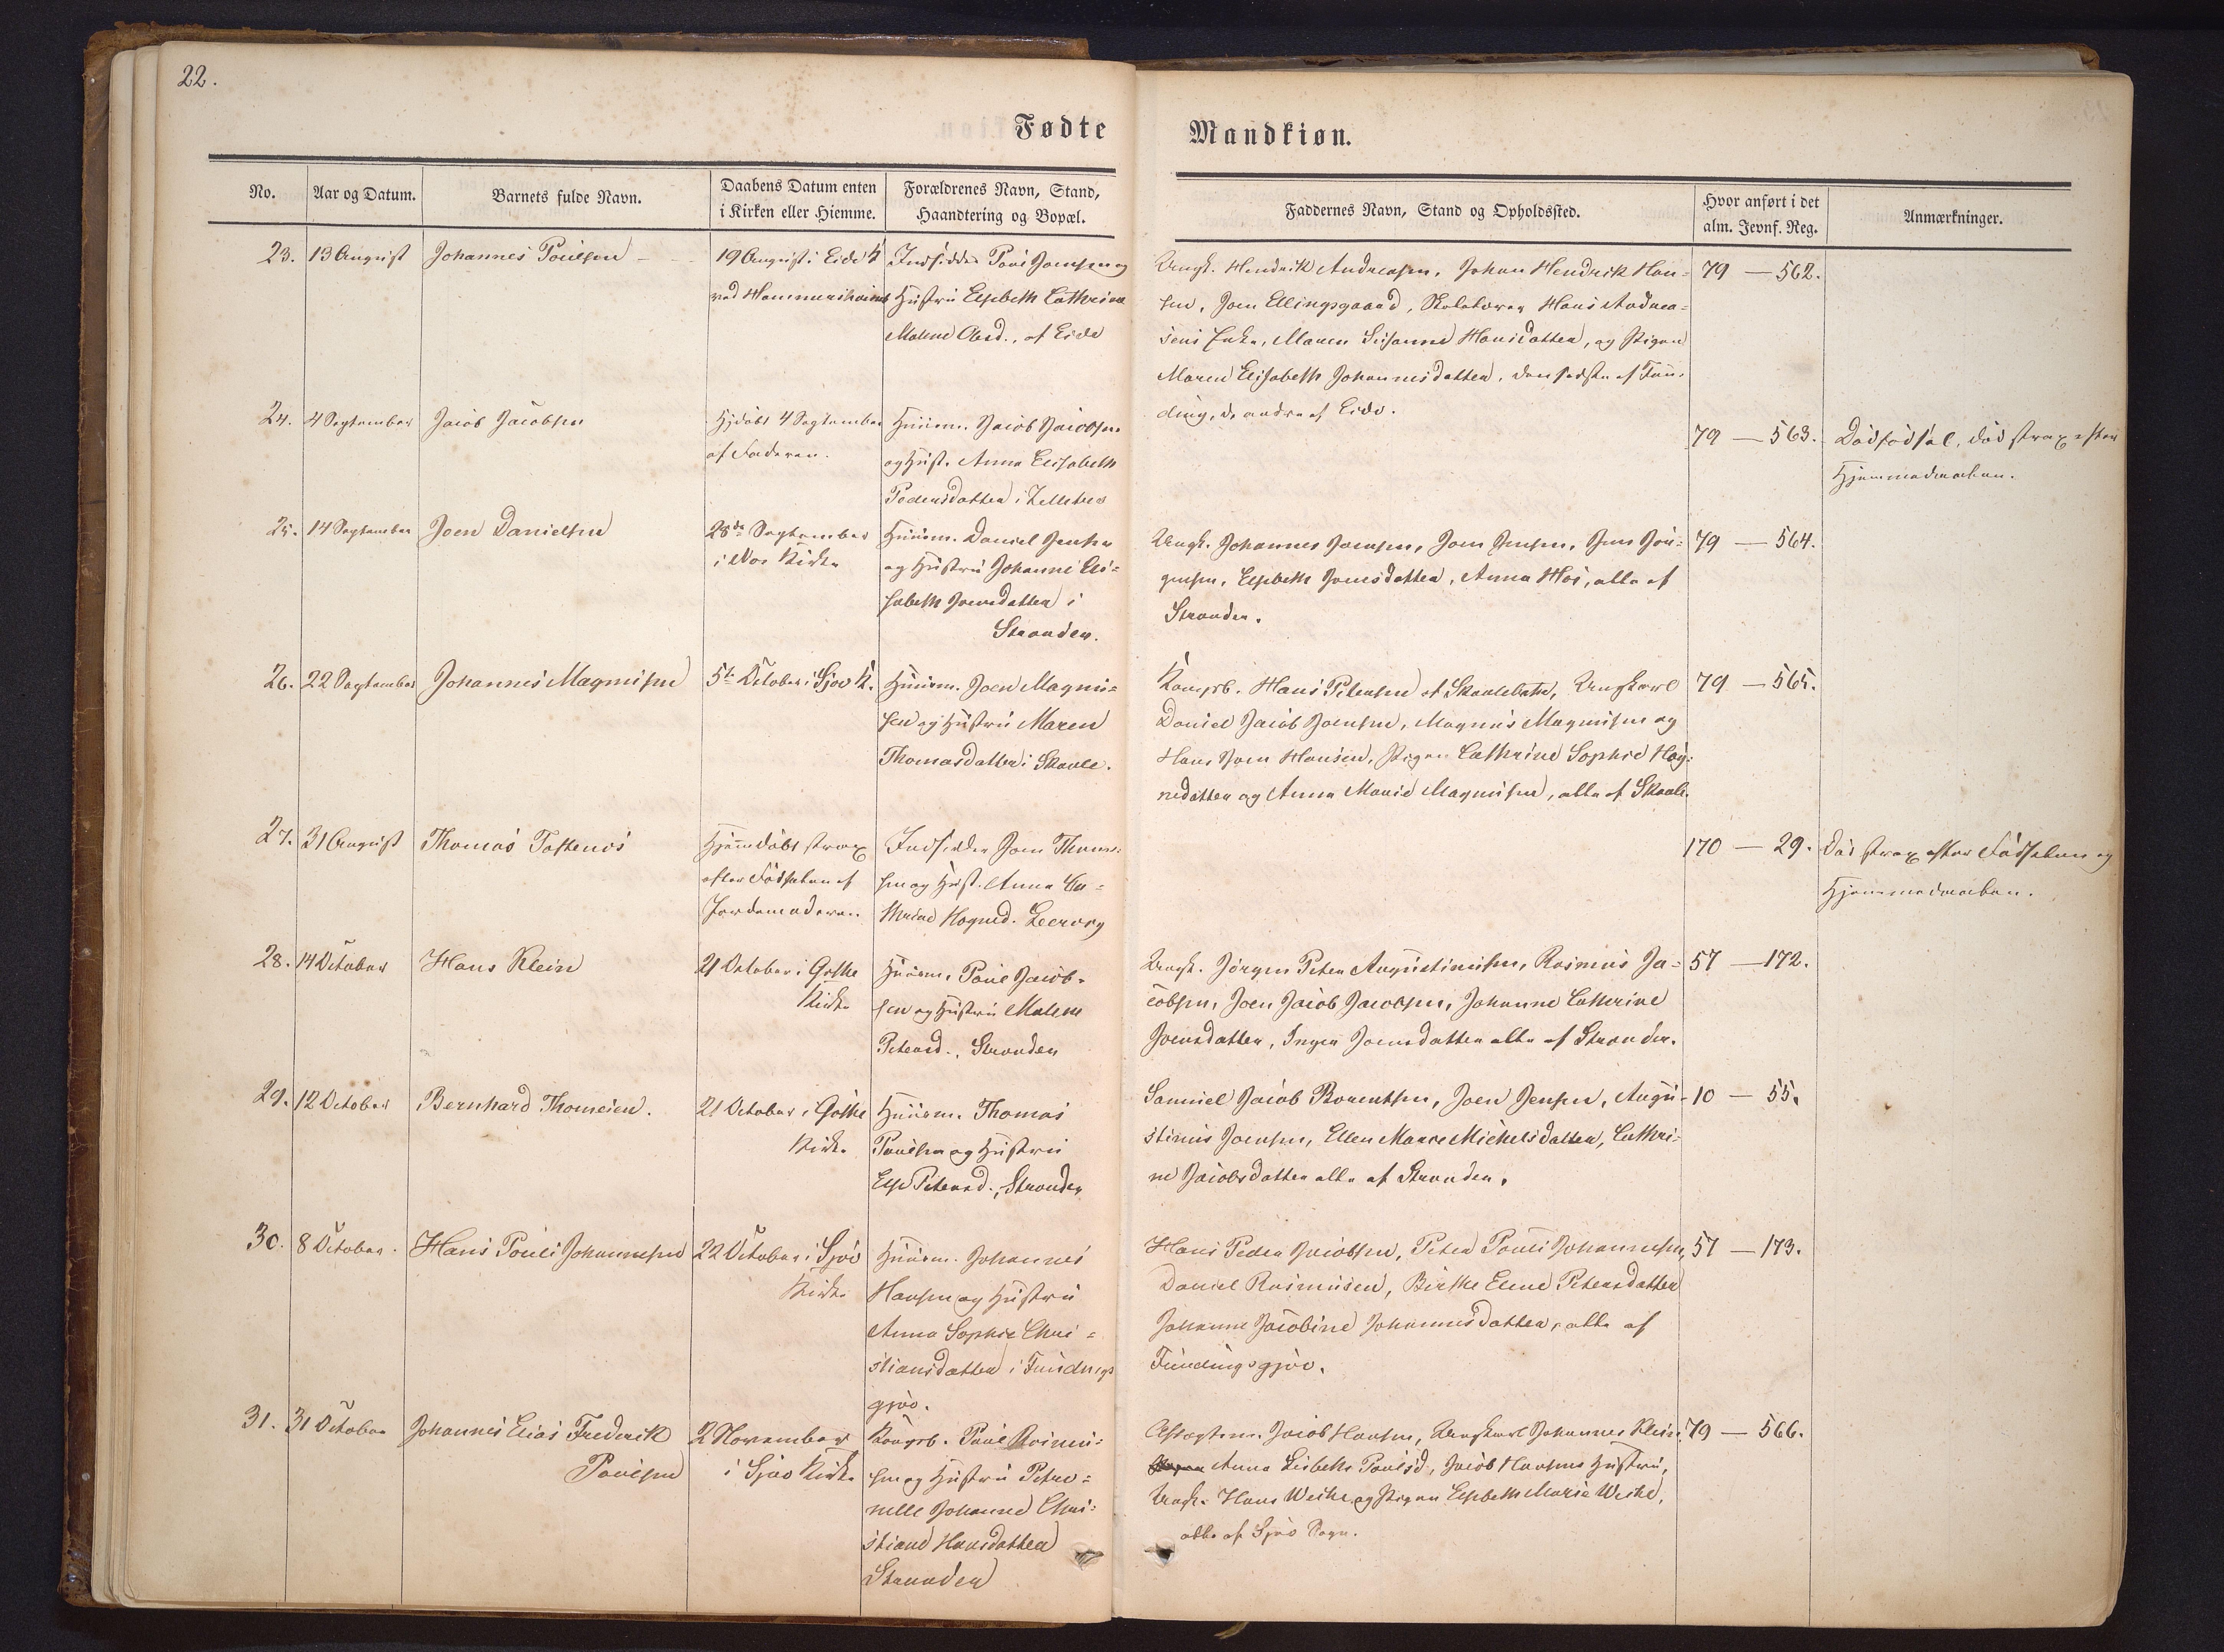 22.
Fødte
Mandkiøn.
No.
Aar og Datum.
Barnets fulde Navn.
Daabens Datum enten
i Kirken eller Hiemme.
Forældrenes Navn, Stand,
Haandtering og Bopæl.
Faddernes Navn, Stand og Opholdssted.
Hvor anført i det
alm. Jevnf. Reg.
Anmærkninger.
23. 13 August Johannes Poulsen
19 August i Eide K
ved Hammershaimb
Indsidder Poul Joensen og
Hustru Elspeth Cathrine
Malene Olesd., af Eide
Ungk. Hendrik Andreasen, Johan Hendrik Han-
sen, Joen Ellingsgaard, Skolelærer Hans Andrea-
sens Enke, Maren Susanne Hansdatter, og Pigen
Maren Elisabeth Johannesdatter, den sidste af Fun-
ding, de andre af Eide.
79 — 562.
24. 4 September Jacob Jacobsen
Hjdøbt 4 September
af Faderen.
Huusm. Jacob Jacobsen
og Hust. Anna Elisabeth
Pedersdatter i
79 — 563.
Dødfødsel, død strax efter
Hjemmedaaben.
25. 14 September Joen Danielsen
28de September
i Næs Kirke
Huusm. Daniel Jensen
og Hustru Johanne Eli-
sabeth Joensdatter i
Strænder.
Ungk. Johannes Joensen, Joen Jensen, Jens Joen-
gensen, Elspeth Joensdatter, Anna Høi, alle af
Strænder.
79 — 564.
26. 22 September Johannes Magnusen
5te October i Sjov K.
Huusm. Joen Magnu-
sen og Hustru Maren
Thomasdatter i Skaale.
Kongsb. Hans Petersen af Skaalebotn, Ungkarl
Daniel Jacob Joensen, Magnus Magnusen og
Hans Joen Hansen, Pigen Cathrine Sophie Hog-
nedatter og Anna Marie Magnusen, alle af Skaale.
79 — 565.
27. 31 August Thomas Toftenæs
Hjemdøbt strax
efter Fødselen af
Jordemoderen.
Indsidder Joen Thom-
sen og Hust. Anna Ca-
thrine Hogned. Leervig
170 — 29.
Død strax efter Fødselen og
Hjemmedaaben.
28. 14 October Hans Klein
21 October i Gøthe
Kirke
Huusm. Poul Jacob-
sen og Hustru Malene
Petersd., Strænder
Ungk. Jørgen Peter Augustinusen, Rasmus Ja-
cobsen, Joen Jacob Jacobsen, Johanne Cathrine
Joensdatter, Inger Joensdatter alle af Strænder.
57 — 172.
29. 12 October Bernhard Thomsen.
21 October i Gøthe
Kirke
Huusm. Thomas
Poulsen og Hustru
Else Petersd., Strænder
Samuel Jacob Berentsen, Joen Jensen, Augu-
stinus Joensen, Ellen Marie Michelsdatter, Cathri-
ne Jacobsdatter alle af Strænder.
10 — 55.
30. 8 October. Hans Pouli Johannesen
22 October i Sjov
Kirke
Huusm. Johannes
Hansen og Hustru
Anna Sophie Chri-
stiansdatter i Fundings
gjov.
Hans Peder Jacobsen, Peter Pouli Johannesen,
Daniel Rasmusen, Birthe Elene Petersdatter
Johanne Jacobine Johannesdatter, alle af
Fundingsgjov.
57 — 173.
31. 31 October Johannes Elias Frederik
Poulsen
2 November
i Sjov Kirke
Kongsb. Poul Rasmu-
sen og Hustru Petro-
nelle Johanne Chri-
stiane Hansdatter
Strænder
Assistent Jacob Hansen, Ungkarl Johannes Klein
Anna Lisbeth Poulsd, Jacob Hansens Hustru,
Ungk. Hans Weihe og Pigen Elspeth Marie Weihe,
alle af Sjov Sogn.
79 — 566.